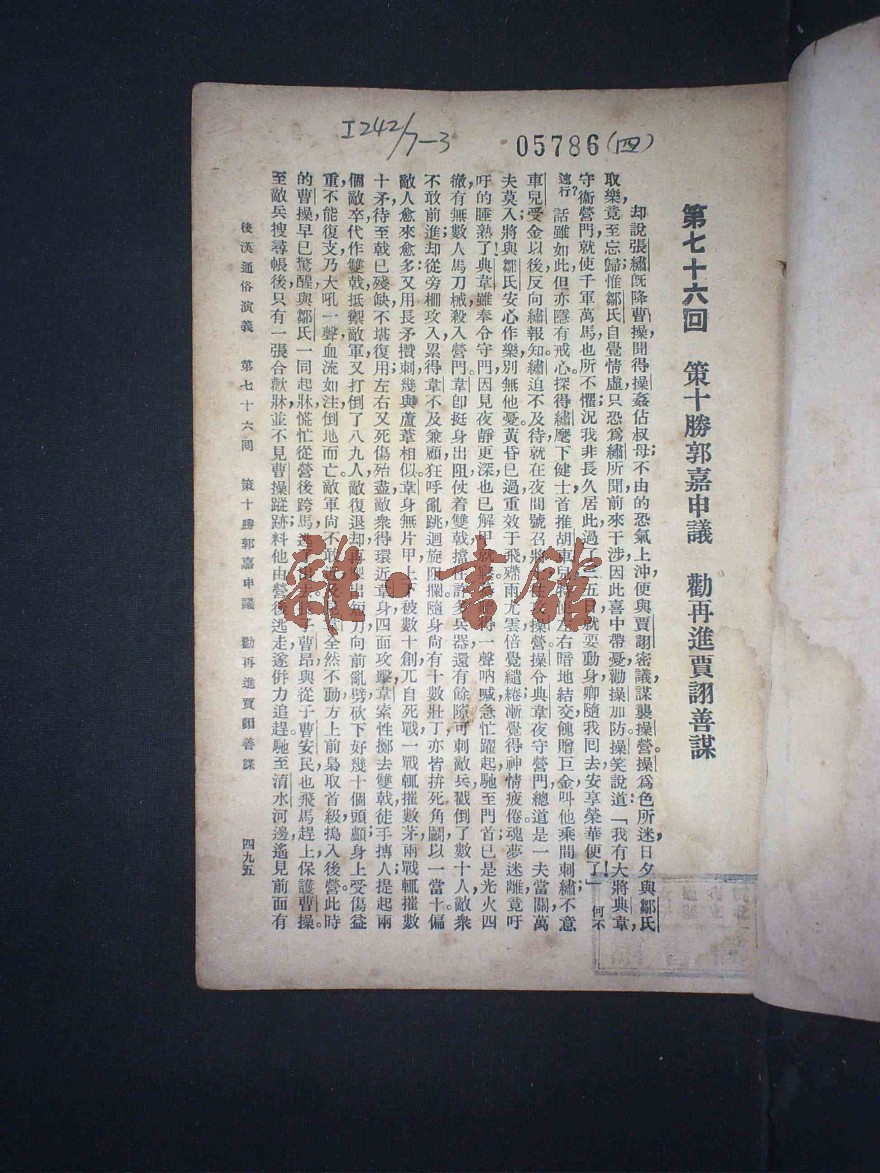 I242/7-3
05786(四)
第七十六回　策十勝郭嘉申議　勸再進賈詡善謀
却說張繡旣降曹操，聞得操姦佔叔母，不由的恐氣上沖，便與賈詡密議，謀襲操營。操爲色所迷，日夕與鄒氏
取樂，竟至忘歸。惟鄒氏自覺情虛，只恐爲繡所聞，前來干涉，因此喜中帶憂，勸操加防。操笑說道：「我有大將典韋，
守衞營門，就使千軍萬馬，也所不懼；況我非長久居此，過了三五日，就要動身，卿隨我回去，安享榮華便了！」何不
速行？話雖如此，但亦隱有戒心，探得繡麾下健士，首推胡車兒，左右暗地結交，餽贈巨金，叫他乘間刺繡。不意
車兒受金以後，反向繡報知。繡迫不及待，就在夜間號召將士，操營。操令典韋夜守營門，總道是一夫當關，萬
夫莫入，將與鄒氏安心作樂，別無他憂。黃昏已過，重效于飛，殢雨尤雲，倍覺繾綣，漸覺得神情疲倦，魂夢迷離，竟吁
吁的睡熟了！典韋雖奉令守門，因見夜靜更深，也已解甲就寢，得一聲吶喊，急忙躍起，馳至門首，已是光火四
徹，有無數人馬刀械，殺入營門。韋卽挺身出阻，仗着雙戟，擋住許多兵器，還有餘隙可刺敵兵，戳倒了數十人，敵衆
不敢前進，却從旁棚攻入，累得韋不及兼顧，狂呼亂跳，迴旋阻攔，隨身尚有十數壯丁，亦皆拚死角鬬，以一當十，偏
敵人愈來愈多，又用長矛攢刺，幾與蘆葦相似。韋身無片甲，上下被數十創，兀自死戰，一戰輒摧數矛，兩戰輒摧數
十矛，待至戟已殘缺，不堪復用，左右又死傷殆盡，敵衆得環近韋身，四面攻擊，韋索性擲去雙戟，徒手搏人，提起兩
個敵卒，代作雙戟，抵禦敵軍，又打倒了八九人，敵復退却，再拔出短刀，向前亂劈，砍下好幾十個頭顱，身上受傷益
重，不能復支，乃大吼一聲，血流如注，倒地而亡。敵軍尚不敢全然不動，方上前梟取首級，搗入後營。此時
的曹操早已驚醒，與鄒氏一同起牀，慌忙從營後跨馬逃子曹昂，與從子曹安民，也飛馬趕上，保護曹操。
至敵兵搜尋帳後，只有一張合歡牀，並不見曹操蹤跡，料他由營後逃走，遂併力追趕。馳至淸水河邊，遙見前面有
後漢通俗演義　第七十六回　策十勝郭嘉申議　勸再進賈詡善謀　四九五
雜·書館